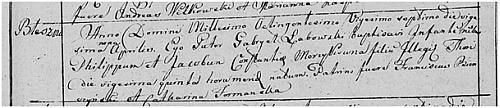 fuere Andreas Witkowski et Marianna
Bleszno Anno Domini Millesimo Octingentesimo Vigesimo Septimo die vige
sima Aprilis. Ego Sutor Gabryel Labowski baptisavi Infantem
Philippum et Jacobum Constantia Morzykowna filiu Illegit Thori
die vigesima quinta horum mend natum. Patrini fuere Franciscus
et Catharina Formanella